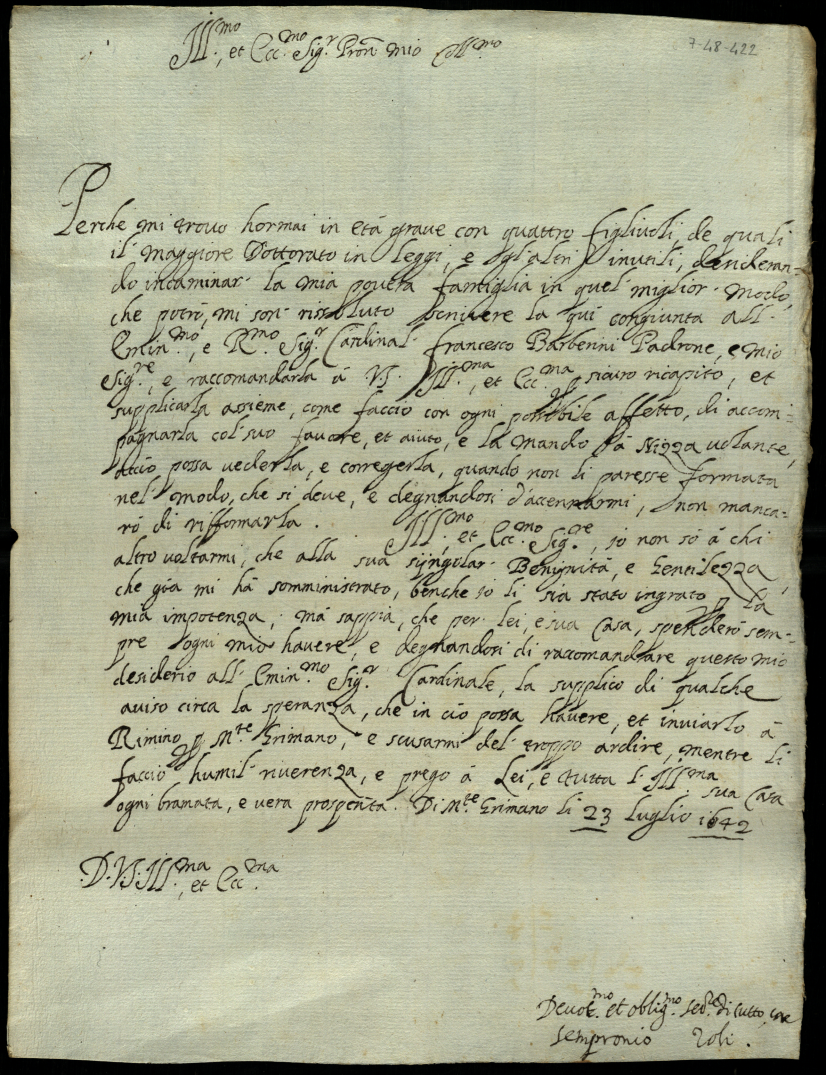 Ill.mo, et Ecc.mo Sig.r Pron mio Coll.mo
7-48-422
Perche mi trovo hormai in età grave con quattro figlivoli, de quali
il maggiore Dottorato in leggi, e gl'altri inutili, desideran=
do incaminar la mia povera famiglia in quel miglior modo,
che potrò, mi son rissoluto scrivere la qui congiunta all'
Emin.mo, e R.mo Sig.r Cardinal Francesco Barberini Padrone, e mio
Sig.re, e raccomandarla à V.S. Ill.ma, et Ecc.ma p sicuro ricapito, et
supplicarla assieme, come faccio con ogni possibile affetto, di accom=
pagnarla col suo favore, et aiuto, e la mando à Nizza volante,
acciò possa vederla, e corregerla, quando non li paresse formata
nel modo, che si deve, e degnandosi d'accennarmi, non manca=
rò di rifformarla. Ill.mo, et Ecc.mo Sig.re, io non sò à chi
altro voltarmi, che alla sua singolar Benignità, e Gentilezza,
che già mi hà somministrato, benche io li sia stato ingrato p la
mia impotenza, mà sappia, che per lei, e sua Casa, spenderò sem=
pre ogni mio havere, e degnandosi di raccomandare questo mio
desiderio all' Emin.mo Sig.r Cardinale, la supplico di qualche
aviso circa la speranza, che in ciò possa havere, et inviarlo à
Rimino p M.te Grimano, e scusarmi del troppo ardire, mentre li
faccio humil riverenza, e prego à Lei, e tutta l'Ill.ma sua Casa
ogni bramata, e vera prosperità. Di M.te Grimano li 23 luglio 1642
D. V.S. Ill.ma, et Ecc.ma
Devot.mo et oblig.mo Ser.re di tutto core
Sempronio Zoli.